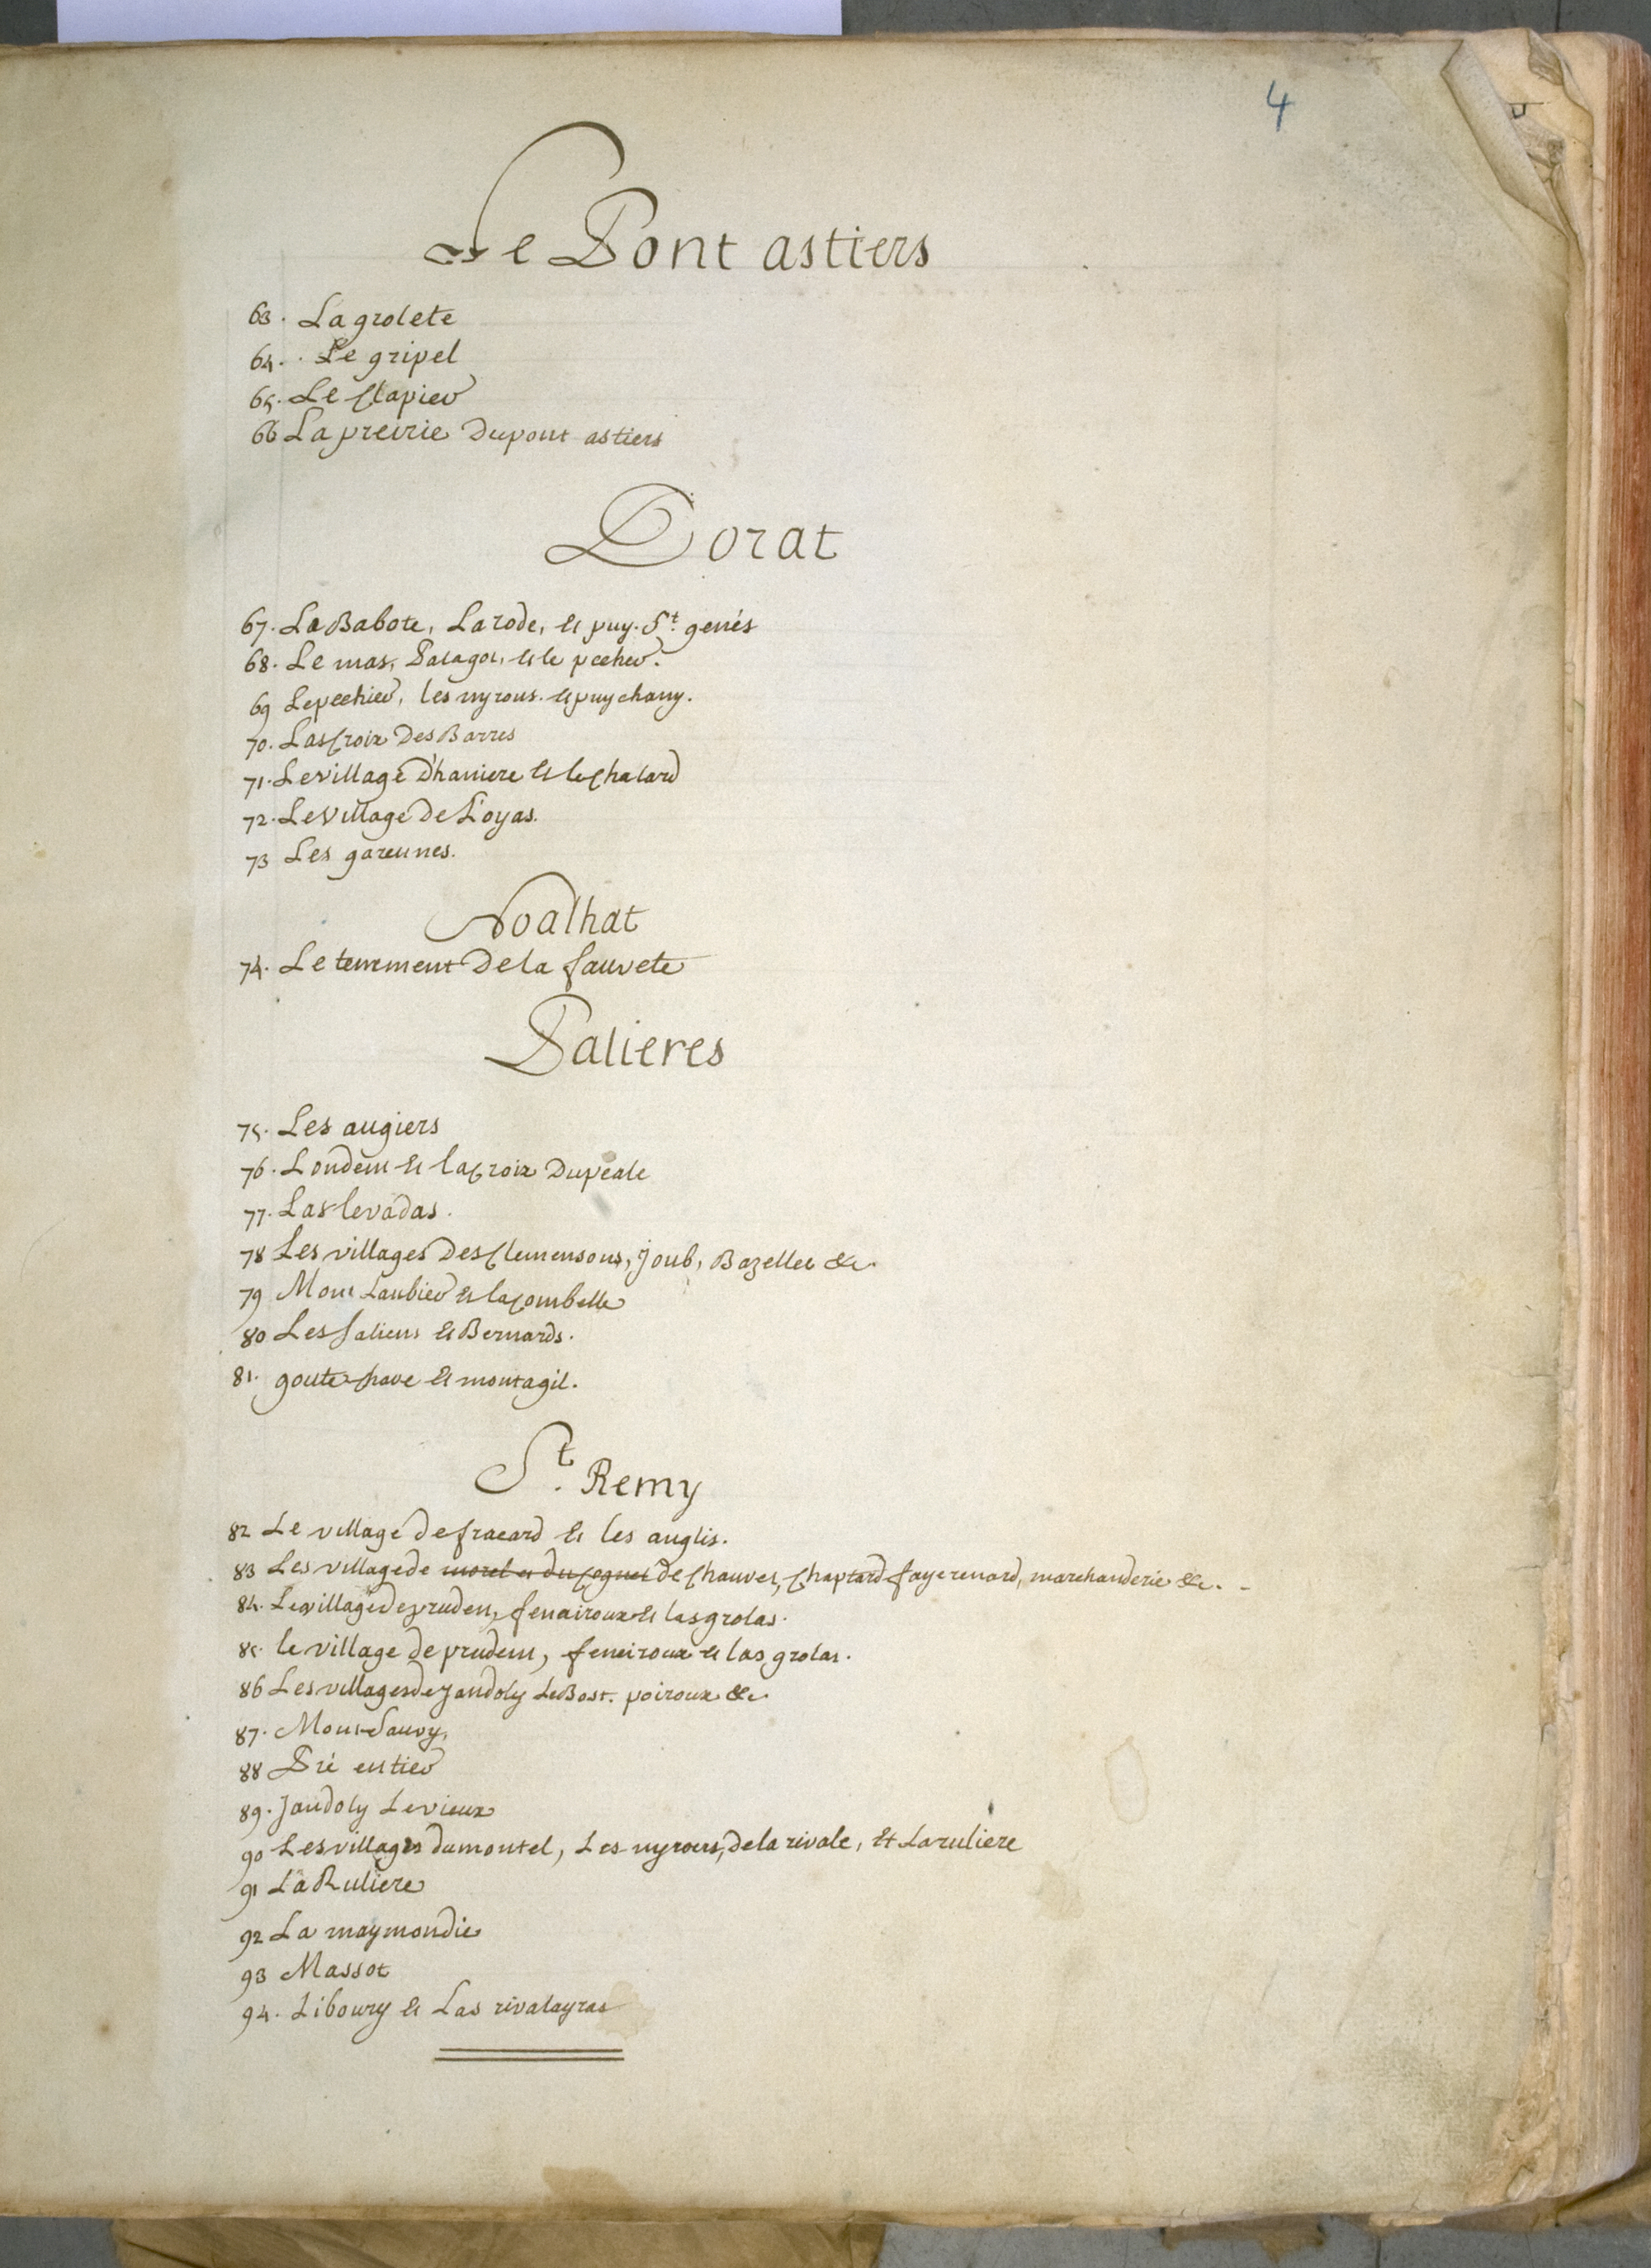 4
Le Pont astiers
63. La grolete
64. Le gripel
65. Le Clapier
66 La preirie Dupont astiers
Dorat
67. La Babote, Larode, et puy. St. genés
68. Le mas, Palagot, et le pecher.
69 Le pechier, les nyrous. et puychany.
70. Las Croix Des Barres
71. Le village D'haniere et le Chalard
72. Le village De L'oyas.
73 Les garennes.
Noalhat
74. Le tenement De la fauvete
Palieres
75. Les augiers
76. Londem et la Croix Dupeale
77. Las levadas.
78 Les villages Des Clemensons, Joub, Bazelles &c.
79 Mont Laubier et la Combelle
80 Les saliens et Bernards.
81. goute chave et montagil.
St. Remy
82 Le village de fracard et les anglis.
83 Les village de morel et du Cognet de Chauvet, Chaptard faye renard, marchanderie &c.
84. Le village de pruden, fenairoux et las grolas.
85. le village de prudent, feneiroux et las grolas.
86 Les villages de Jandoly Le Bost. poiroux &c.
87. Mont Sauvy,
88 Pré entier
89. Jandoly Levieux
90 Les villages dumontel, Les nyrours, de la rivale, et La ruliere
91 La Ruliere
92 La maymondie
93 Massot
94. Liboury et Las rivalayras